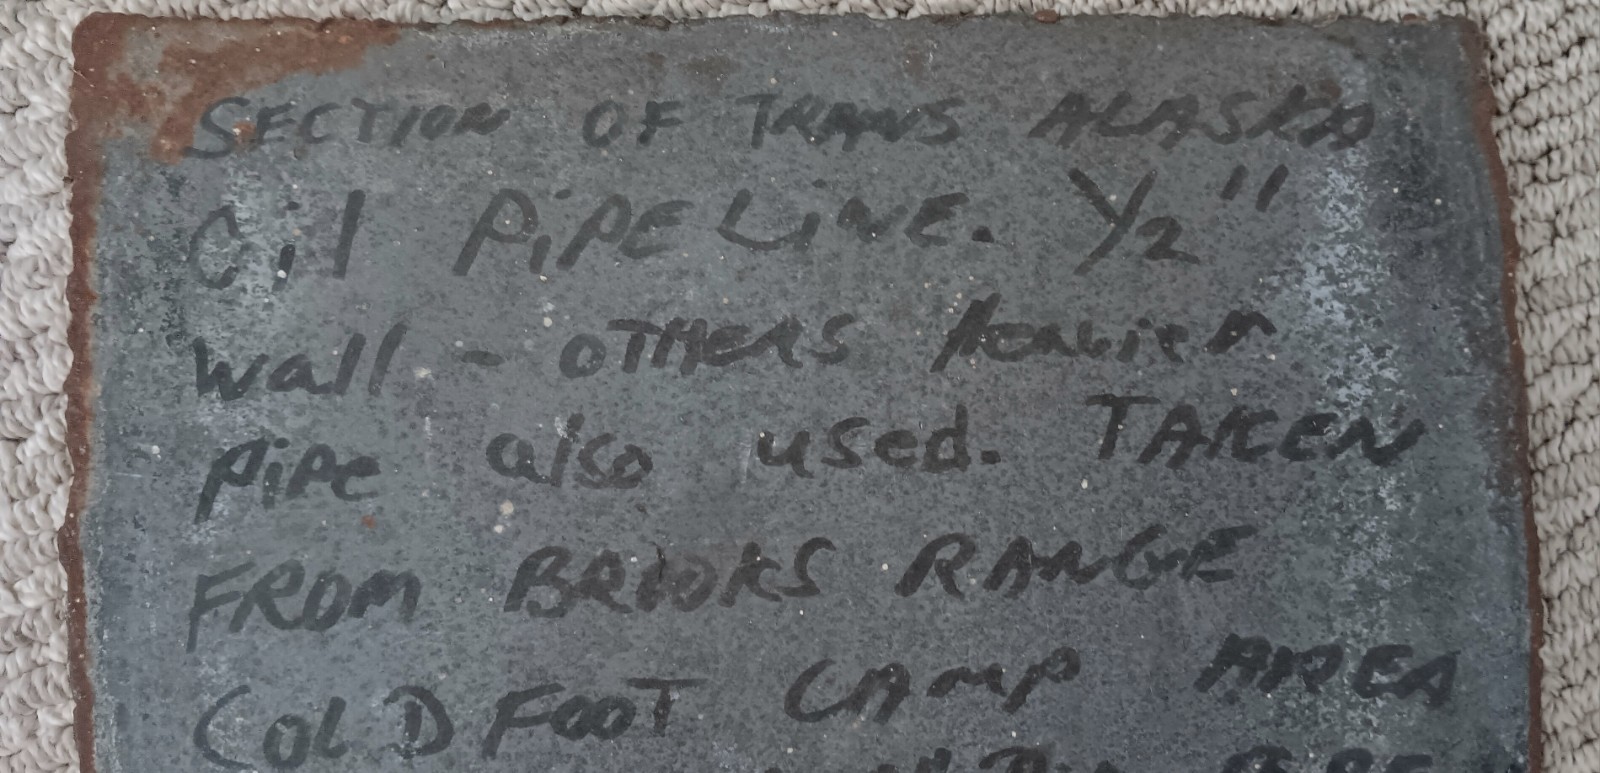 SECTION OF TRANS ALASKA
Oil PiPELiNE. 1/2"
wall - OTHERS heavier
pipe also used. TAKEN
FROM BROOKS RANGE
COLDFOOT CAmp AREA